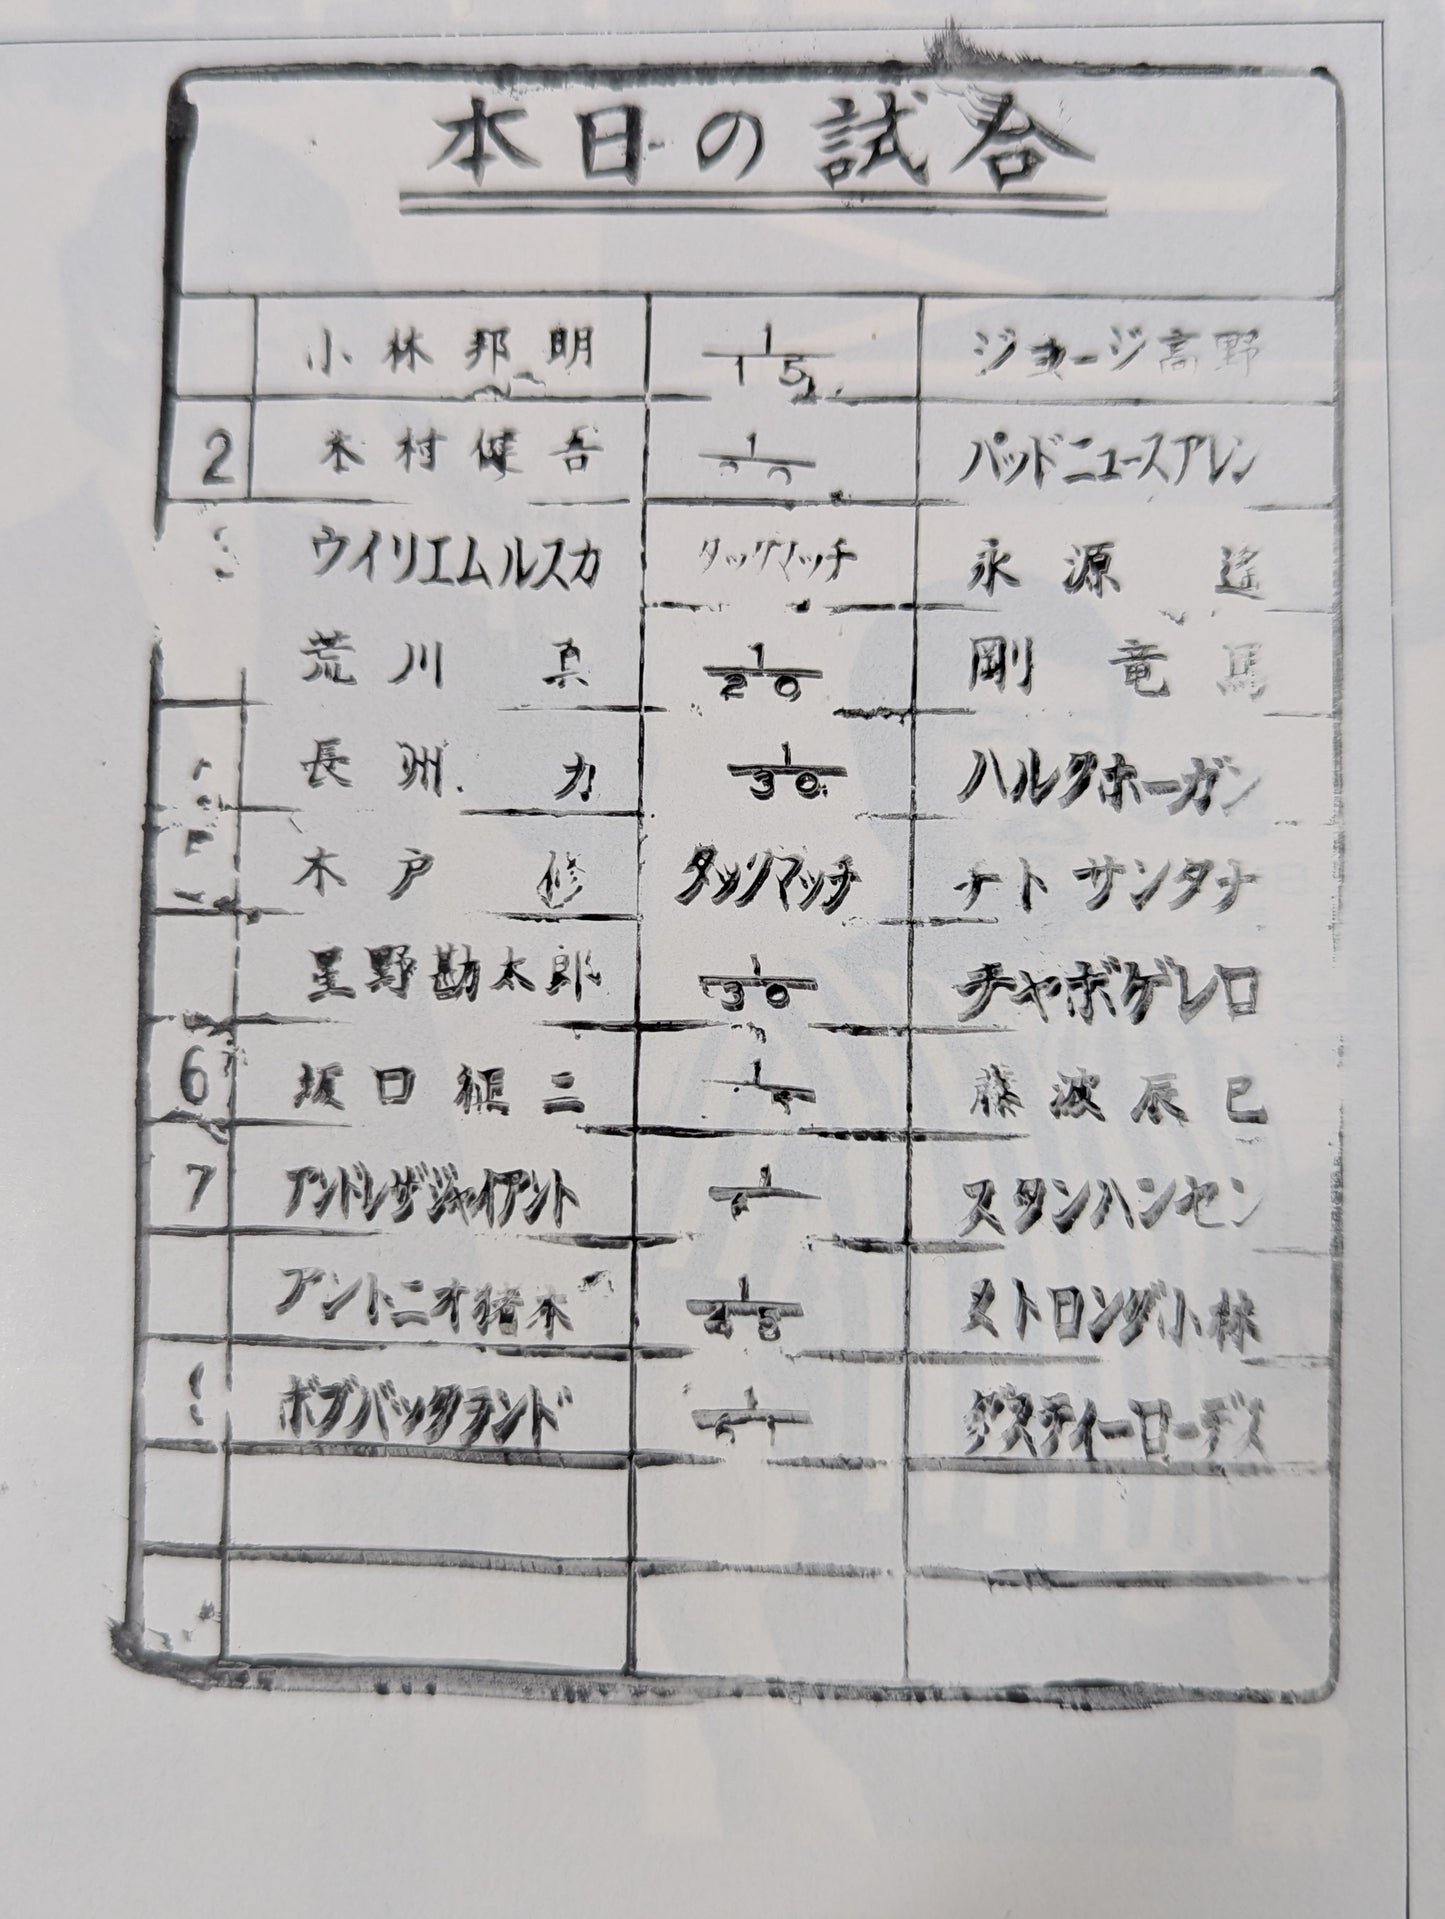 本日の試合
小林邦明 1/15 ジョージ高野
2 木村健吾 1 バッドニュースアレン
ウイリエムルスカ タッグマッチ 永源遙
荒川真 1/20 剛竜馬
長州力 1/30 ハルクホーガン
木戸修 タッグマッチ チト サンタナ
星野勘太郎 1/30 チャボゲレロ
6 坂口征二 1 藤波辰巳
7 アンドレザジャイアント 1 スタンハンセン
アントニオ猪木 1/45 ストロング小林
ボブバックランド 1 ダスティーローデス